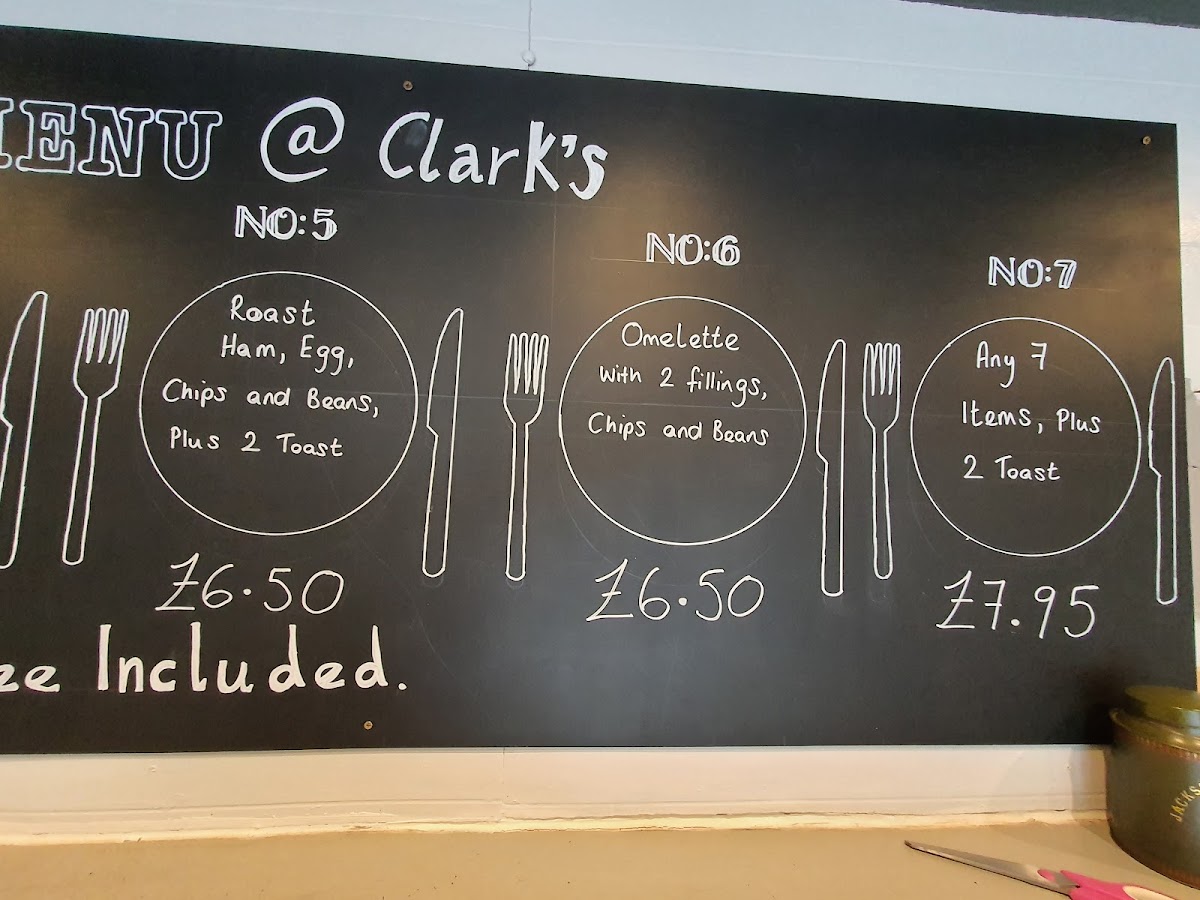 MENU @ Clark's
NO:5
Roast
Ham, Egg,
Chips and Beans,
Plus 2 Toast
£6.50
NO:6
Omelette
With 2 fillings,
Chips and Beans
£6.50
NO:7
Any 7
Items, Plus
2 Toast
£7.95
Included.